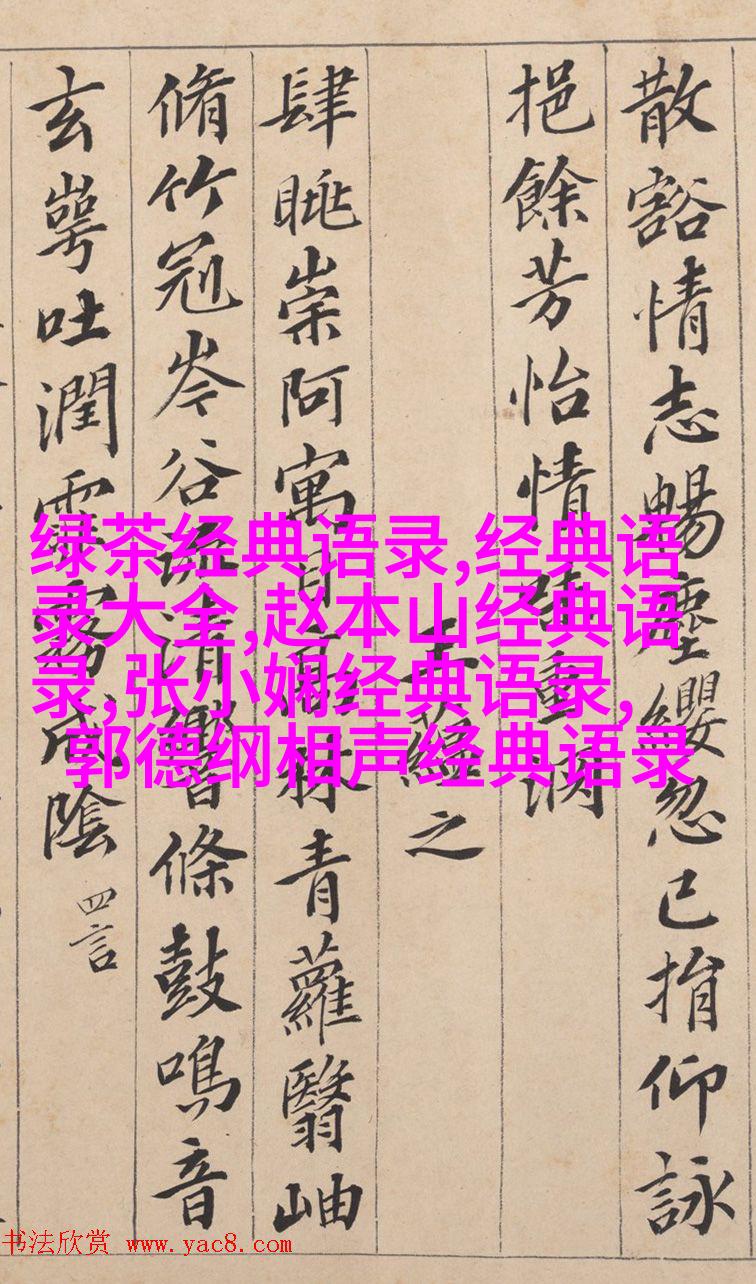 散豁情志暢塵纓忽已捐仰詠
挹餘芳怡情味重淵
王蘊之
肆眺崇阿寓目高林青蘿翳岫
脩竹冠岑谷流清響條鼓鳴音
玄崿吐潤霏霧成陰 四言
绿茶经典语录,经典语
录大全,赵本山经典语
录,张小娴经典语录,
郭德纲相声经典语录
书法欣赏 www.yac8.com